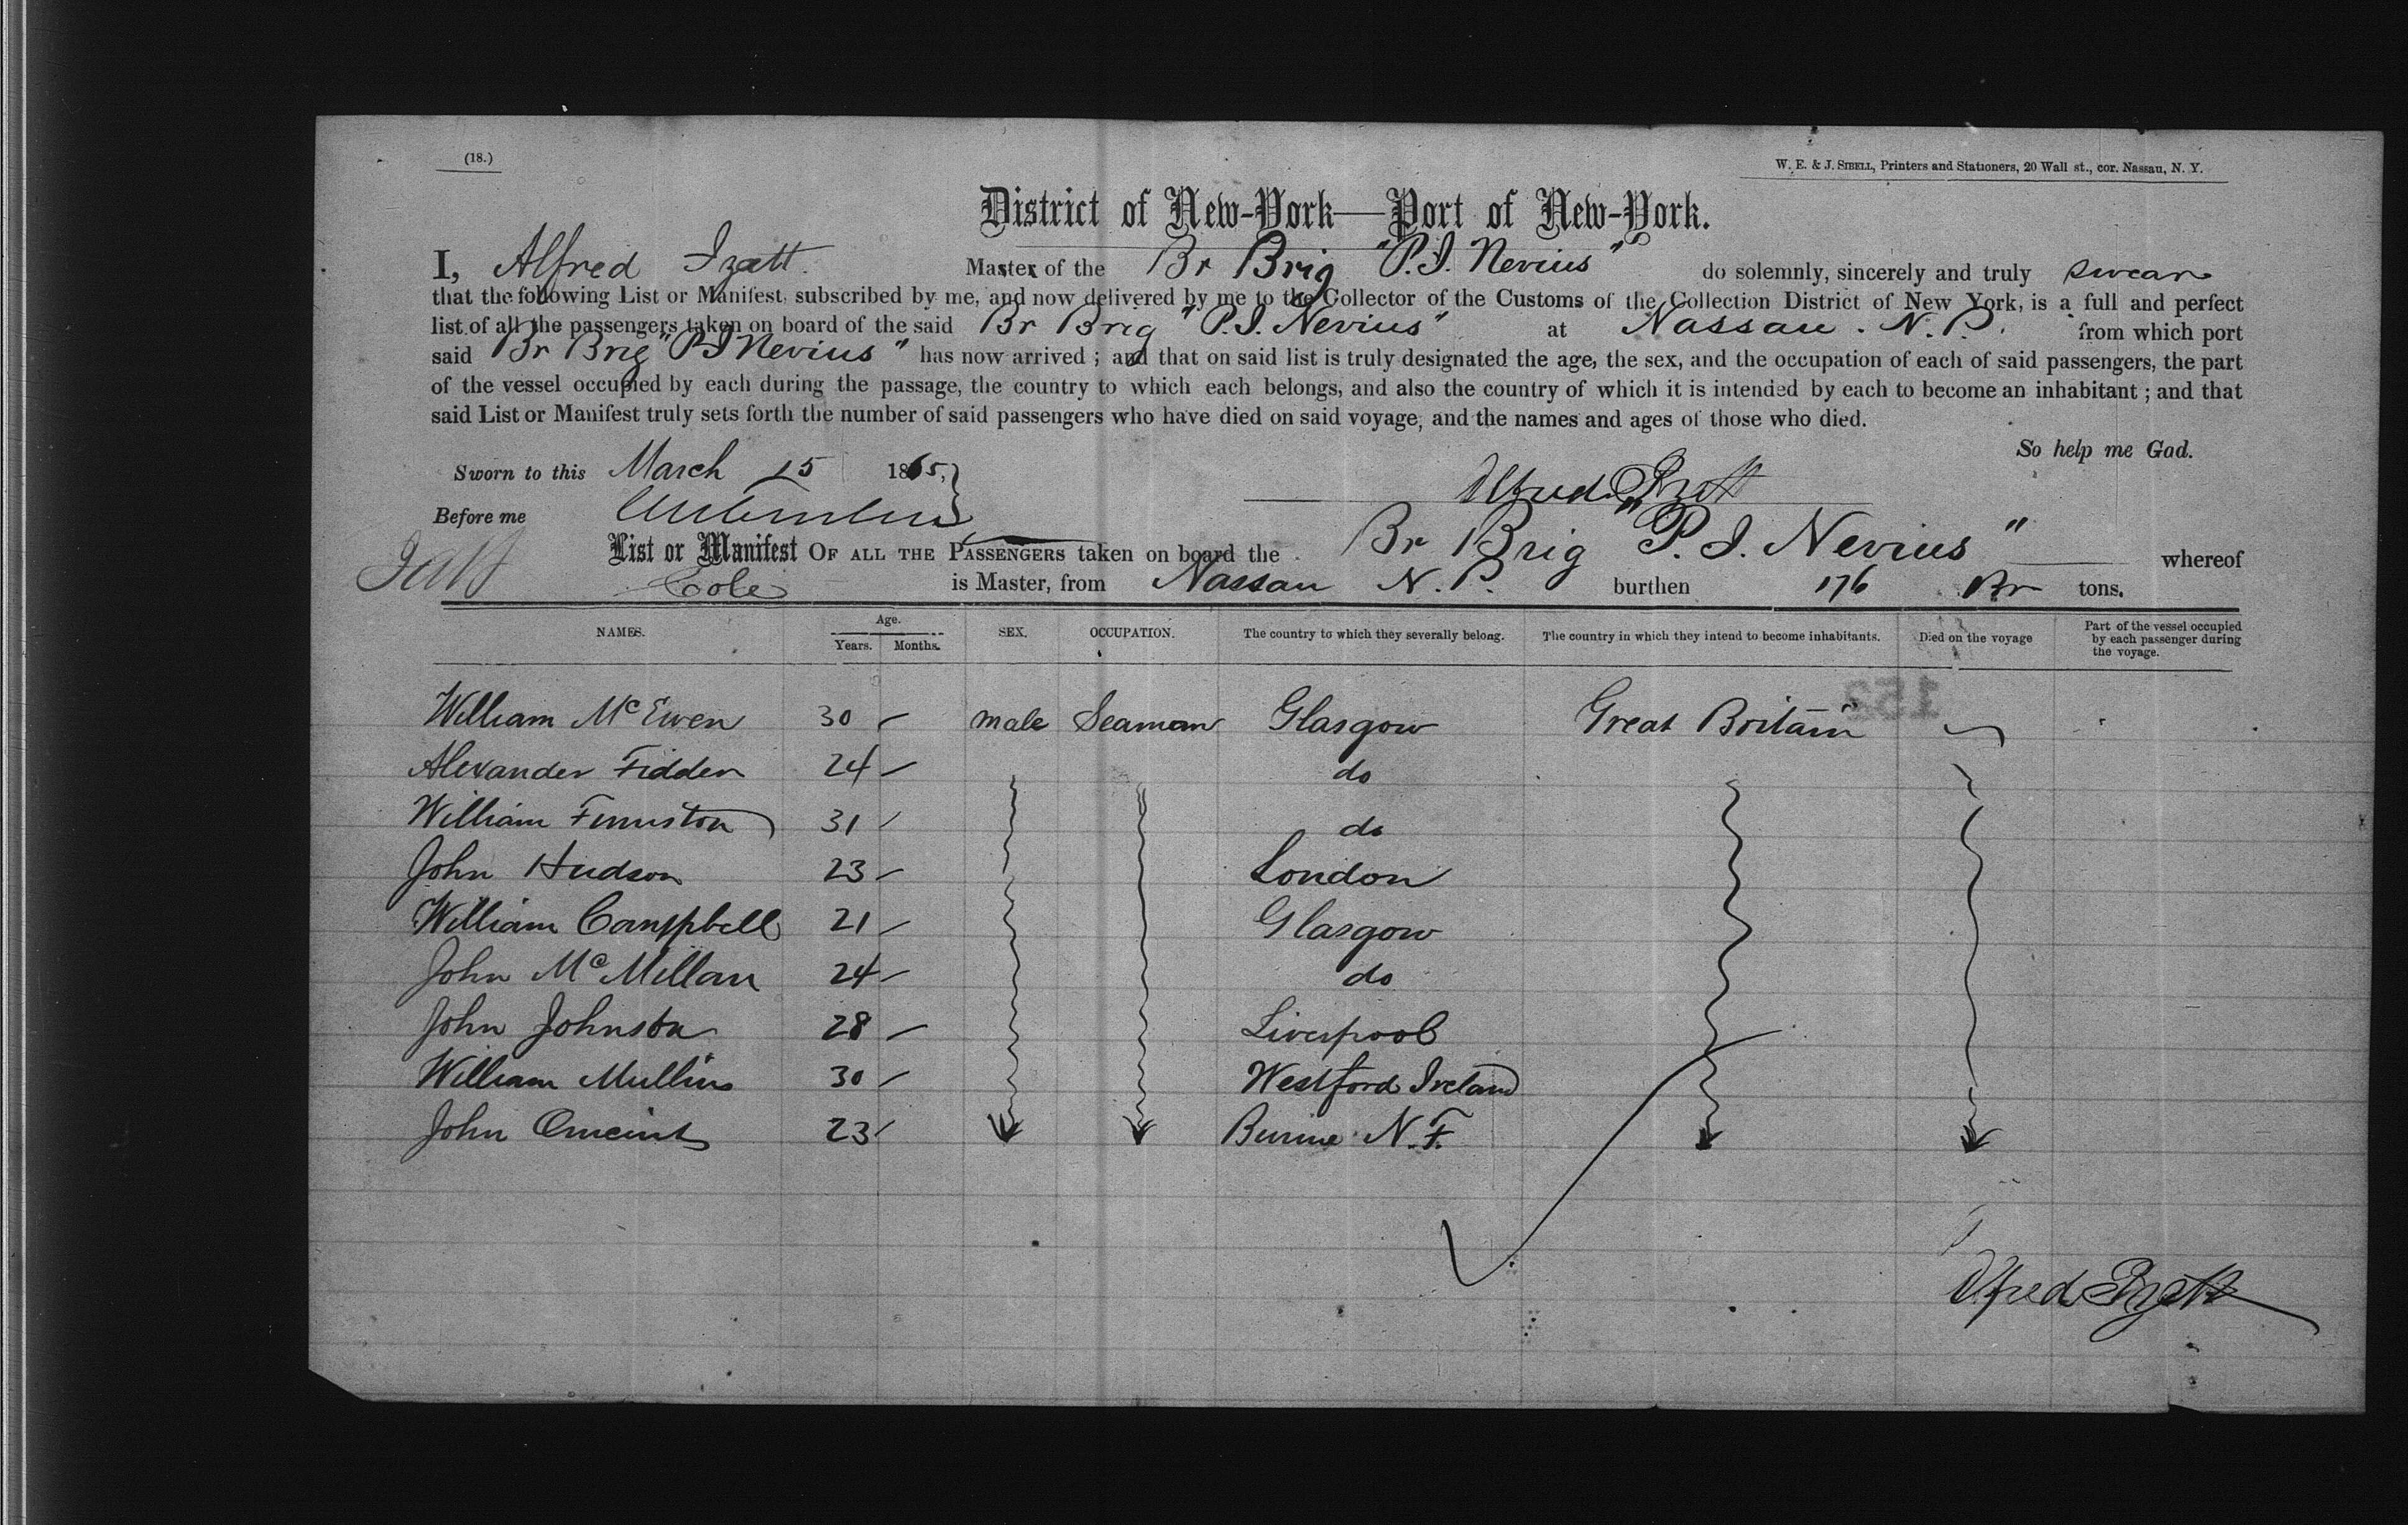 (18.)
W. E. & J. SIBELL, Printers and Stationers, 20 Wall st., cor. Nassau, N. Y.
District of New-York—Port of New-York.
I, Alfred Izatt. Master of the Br Brig "P.I. Nevius" do solemnly, sincerely and truly swear
that the following List or Manifest, subscribed by me, and now delivered by me to the Collector of the Customs of the Collection District of New York, is a full and perfect
list of all the passengers taken on board of the said Br Brig "P.I. Nevius" at Nassau. N. P. from which port
said Br Brig "P I Nevius" has now arrived ; and that on said list is truly designated the age, the sex, and the occupation of each of said passengers, the part
of the vessel occupied by each during the passage, the country to which each belongs, and also the country of which it is intended by each to become an inhabitant ; and that
said List or Manifest truly sets forth the number of said passengers who have died on said voyage, and the names and ages of those who died.
So help me God.
Sworn to this March 15 1865,
Alfred Izatt
Before me
List or Manifest OF ALL THE PASSENGERS taken on board the Br Brig "P. I. Nevius" whereof
Cole is Master, from Nassau N. P. burthen 176 Br tons.
NAMES. Age. Years. Months. SEX. OCCUPATION. The country to which they severally belong. The country in which they intend to become inhabitants. Died on the voyage Part of the vessel occupied by each passenger during the voyage.
152
William McEwen 30 male Seaman Glasgow Great Britain
Alexander Fidden 24 do
William Finniston 31 do
John Hudson 23 London
William Campbell 21 Glasgow
John McMillan 24 do
John Johnston 28 Liverpool
William Mullins 30 Westford Ireland
John 23 N. F.
Alfred Izatt